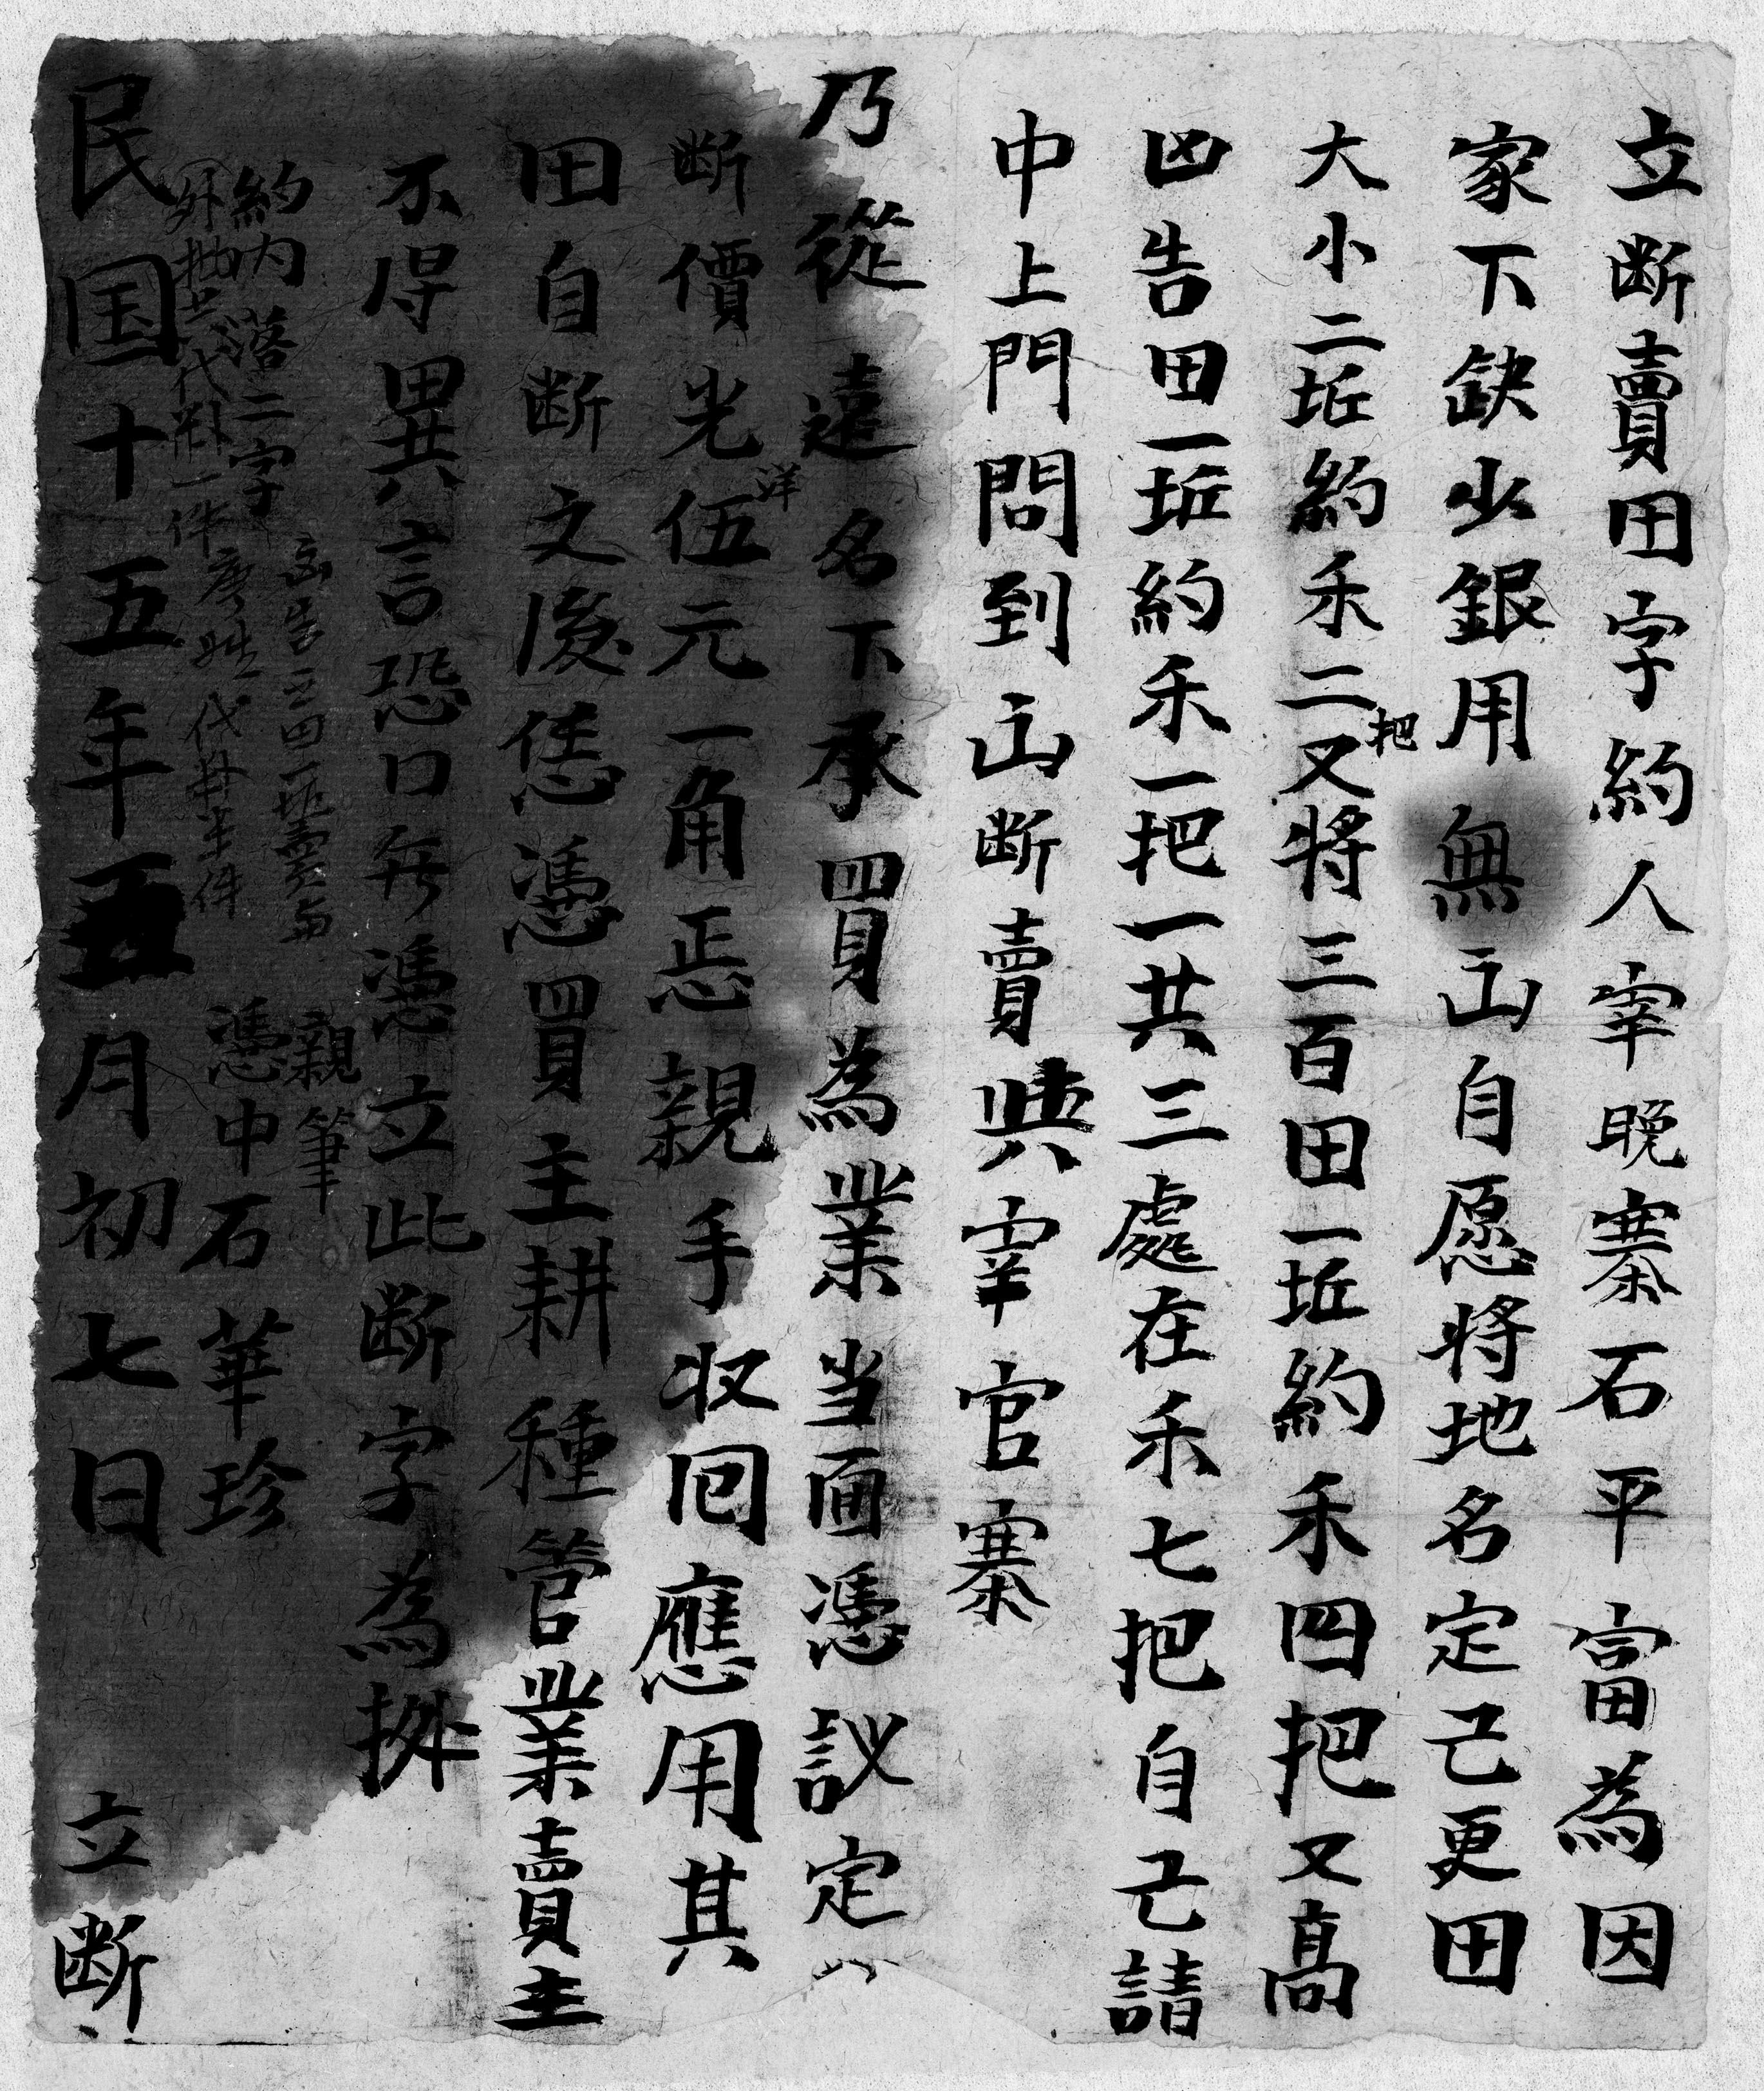 立断賣田字約人宰晚寨石平富為因
家下缺少銀用無㞢自愿将地名定己更田
大小二坵約禾二把又将三百田一坵約禾四把又高
凶告田一坵約禾一把一共三處在禾七把自己請
中上門問到㞢断賣與宰官寨
乃從遠名下承買為業当面憑議定
断價光洋伍元一角㱏親手収囘應用其
田自断之後恁憑買主耕種管業賣主
不得異言恐口無憑立此断字為㨿
約内落二字
外批
親筆
憑中石華珍
民国十五年五月初七日 立断